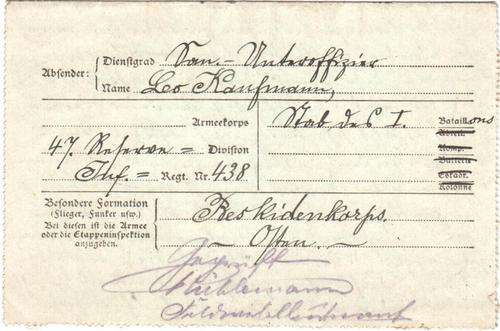 Absender:
Dienstgrad San.- Unteroffizier
Name Leo Kaufmann,
Armeekorps
Stab des I. Bataillons
Abteil.
47. Reserve = Division
Komp.
Batterie
Inf. = Regt. Nr. 438
Eskadr.
Kolonne
Besondere Formation
(Flieger, Funker usw.)
Bei diesen ist die Armee
oder die Etappeninspektion
anzugeben.
Beskidenkorps.
- Osten. -
Geprüft
Feldwebelleutnant